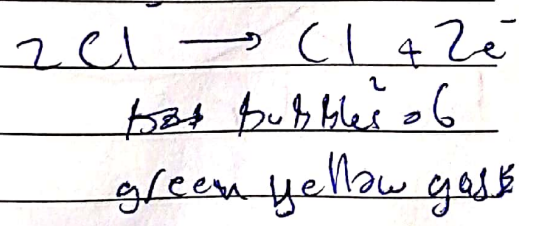 2Cl → Cl₂ + 2e⁻
bubbles of
green yellow gas